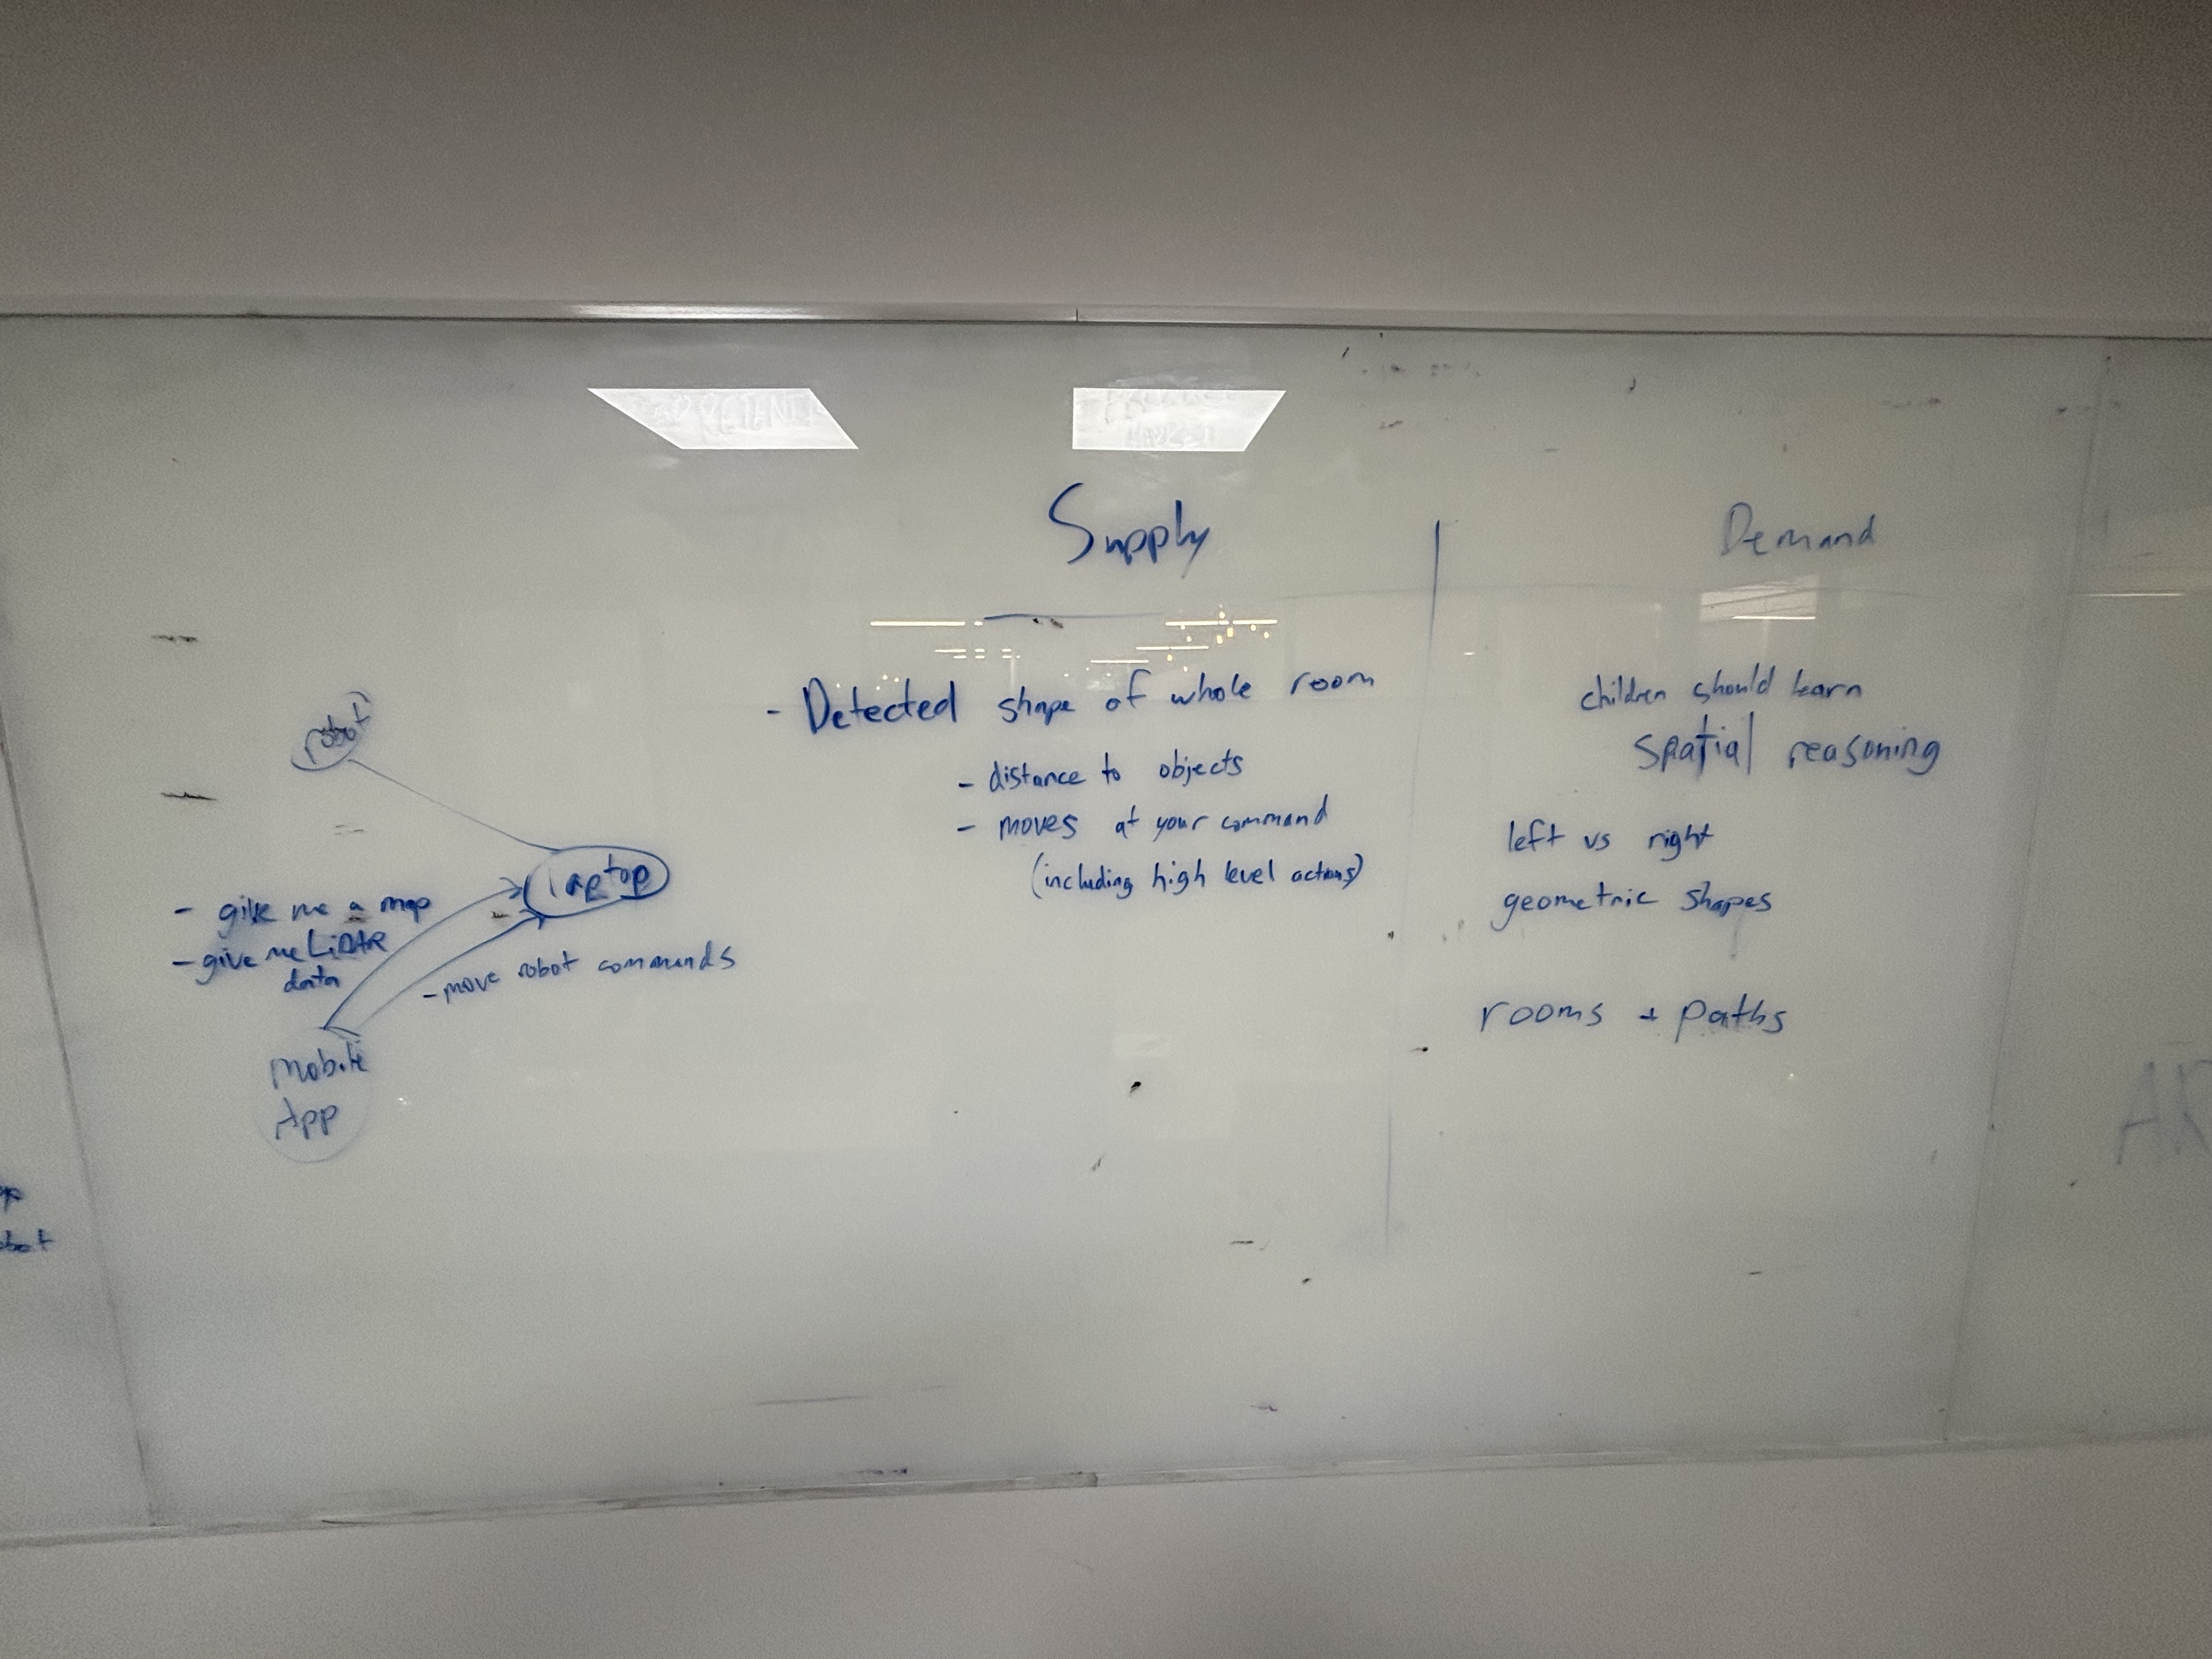 robot
laptop
- give me a map
- give me LiDAR
data
- move robot commands
Mobile
App
Supply
- Detected shape of whole room
- distance to objects
- moves at your command
(including high level actions)
Demand
children should learn
spatial reasoning
left vs right
geometric shapes
rooms + paths